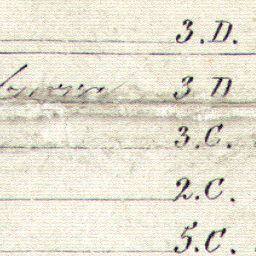 3.D.
3 D
3.C.
2.C.
5.C.